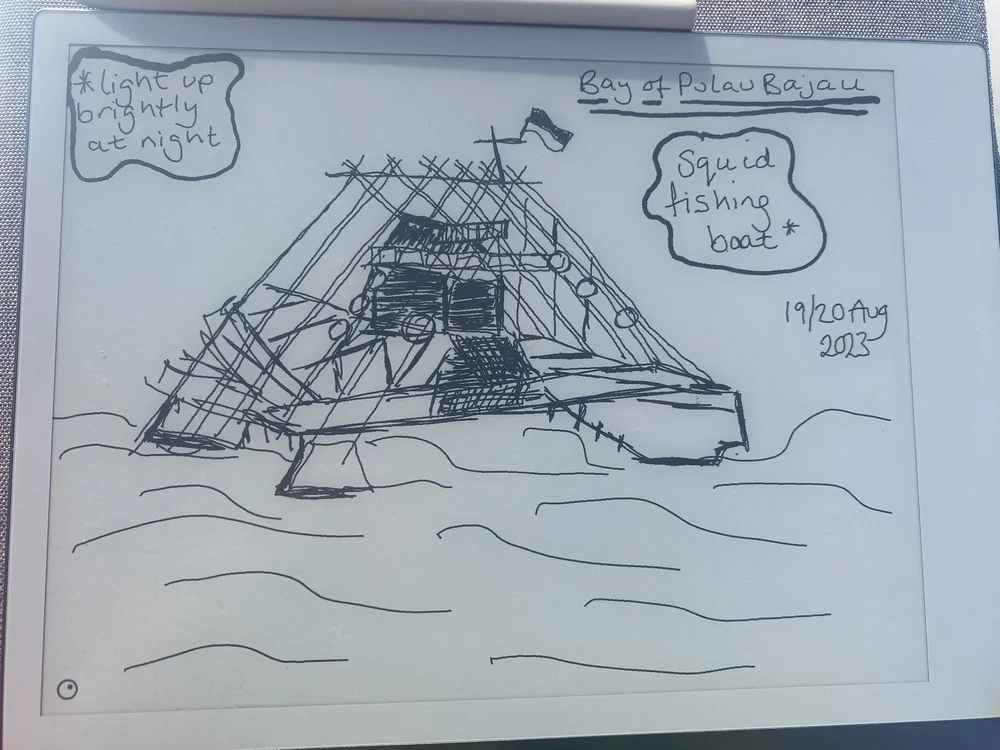 *light up
brightly
at night
Bay of Pulau Bajau
Squid
fishing
boat*
19/20 Aug
2023